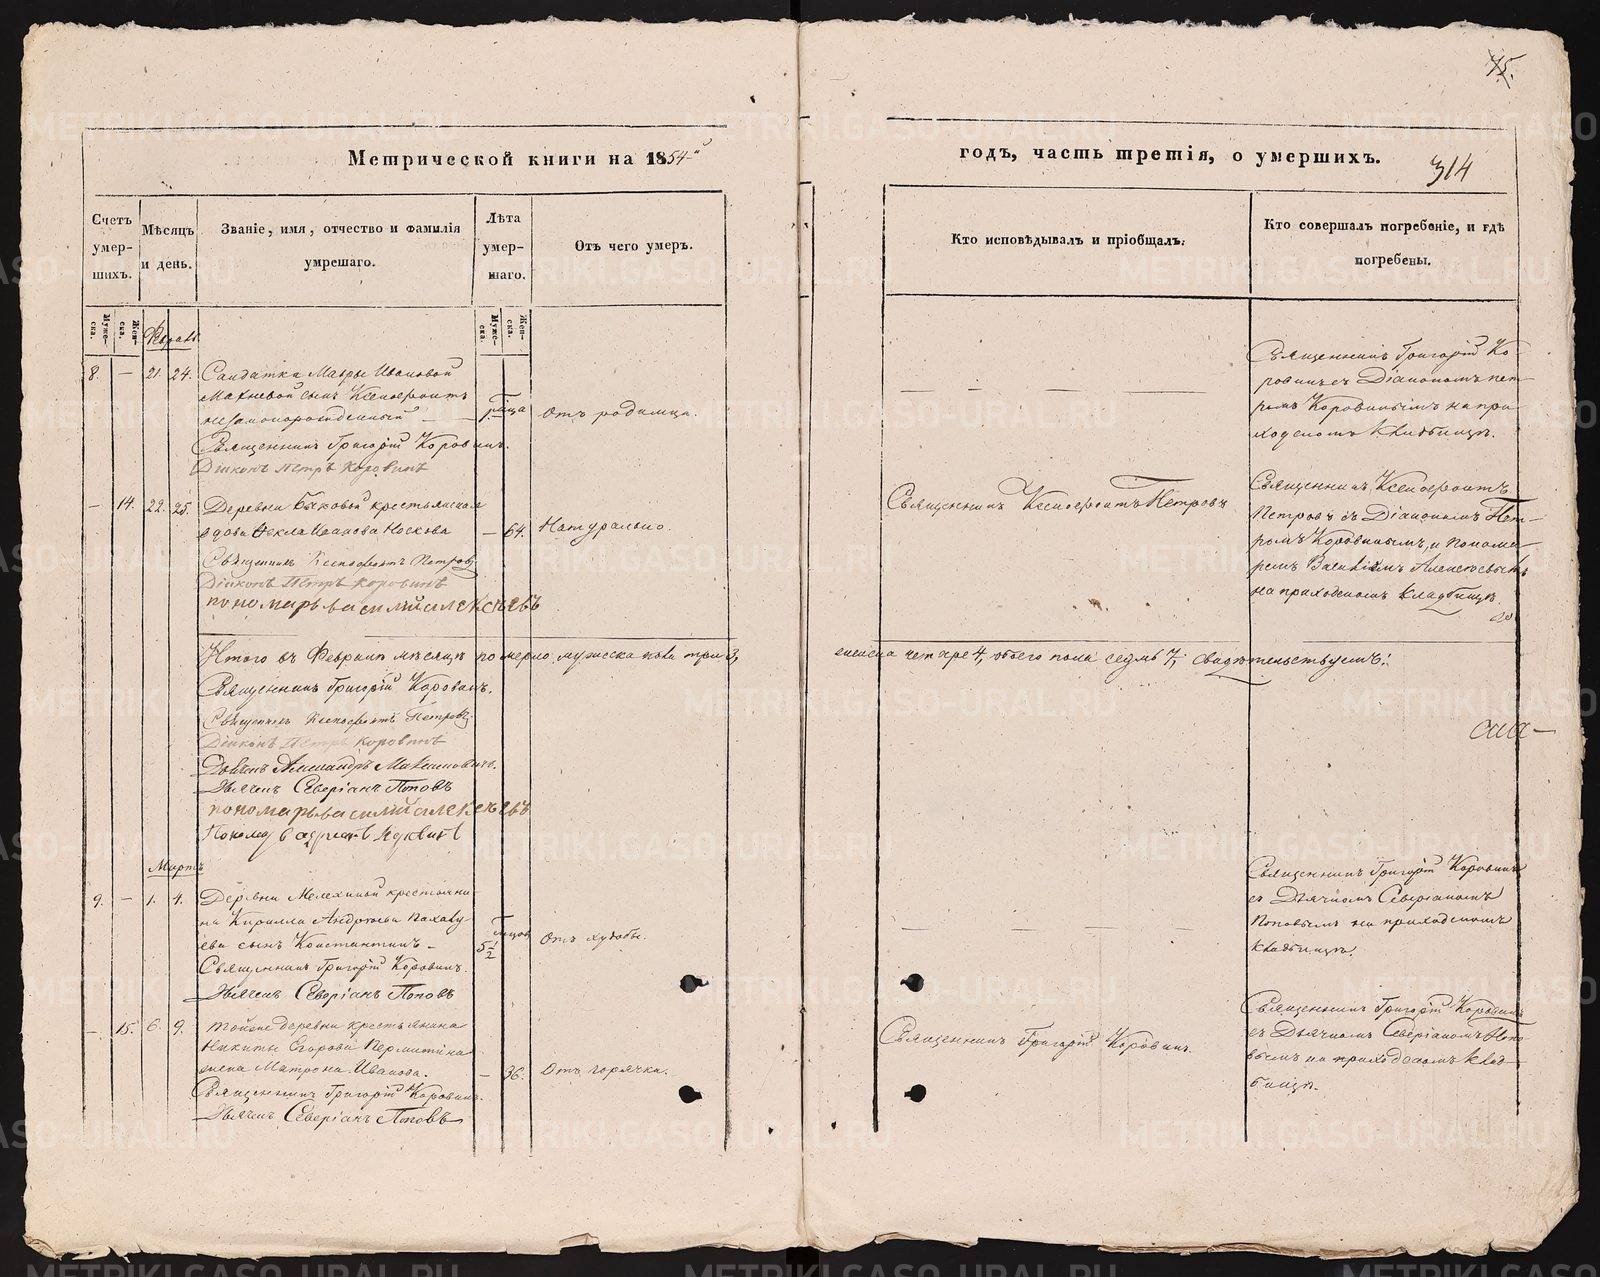 75.
Метрической книги на 1854-й
годъ, часть третія, о умершихъ.
314
Счетъ умер-шихъ.
Мѣсяцъ и день.
Званіе, имя, отчество и фамилія умершаго.
Лѣта умер-шаго.
Отъ чего умеръ.
Кто исповѣдывалъ и пріобщалъ.
Кто совершалъ погребеніе, и гдѣ погребены.
Муже-ска.
Жен-ска.
Муже-ска.
Жен-ска.
Февраль
8. — 21. 24. Салдатки Мавры Ивановой
сынъ Ксенофонтъ
незаконорожденный
Отъ родимца.
Священникъ Григорій Коровинъ.
Діаконъ Петръ Коровинъ
Священникъ Григорій Ко-
ровинъ съ Діакономъ Пет-
ромъ Коровинымъ на при-
ходскомъ кладбищѣ.
— 14. 22. 25. Деревни Быковой крестьянская
вдова Фекла Иванова Носкова
— 64. Натурально.
Священникъ Ксенофонтъ Петровъ
Діаконъ Петръ Коровинъ
пономарь василий алексѣевъ
Священникъ Ксенофонтъ Петровъ
Священникъ Ксенофонтъ
Петровъ съ Діакономъ Пет-
ромъ Коровинымъ, и понома-
ремъ Василіемъ Алексѣевымъ
на приходскомъ кладбищѣ.
Итого въ Февралѣ мѣсяцѣ померло мужеска пола три 3,
женска четыре 4, обоего пола седмь 7, свидѣтельствуемъ:
Священникъ Григорій Коровинъ.
Священникъ Ксенофонтъ Петровъ
Діаконъ Петръ Коровинъ
Александръ Максимовичъ.
Дьячекъ Северіанъ Поповъ
пономарь василий алексѣевъ
Мартъ
9. — 1. 4. Деревни Мелехиной крестьяни-
на Кирилла Андреева
сынъ Константинъ —
5 1/2
Отъ худобы.
Священникъ Григорій Коровинъ.
Дьячекъ Северіанъ Поповъ
Священникъ Григорій Коровинъ
съ Дьячкомъ Северіаномъ
Поповымъ на приходскомъ
кладбищѣ.
— 15. 6. 9. Тойже деревни крестьянина
Никиты Егорова Пермитина
жена Матрона Иванова.
— 36. Отъ горячки.
Священникъ Григорій Коровинъ.
Дьячекъ Северіанъ Поповъ
Священникъ Григорій Коровинъ.
Священникъ Григорій Коровинъ
съ Дьячкомъ Северіаномъ Попо-
вымъ на приходскомъ клад-
бищѣ.
METRIKI.GASO-URAL.RU